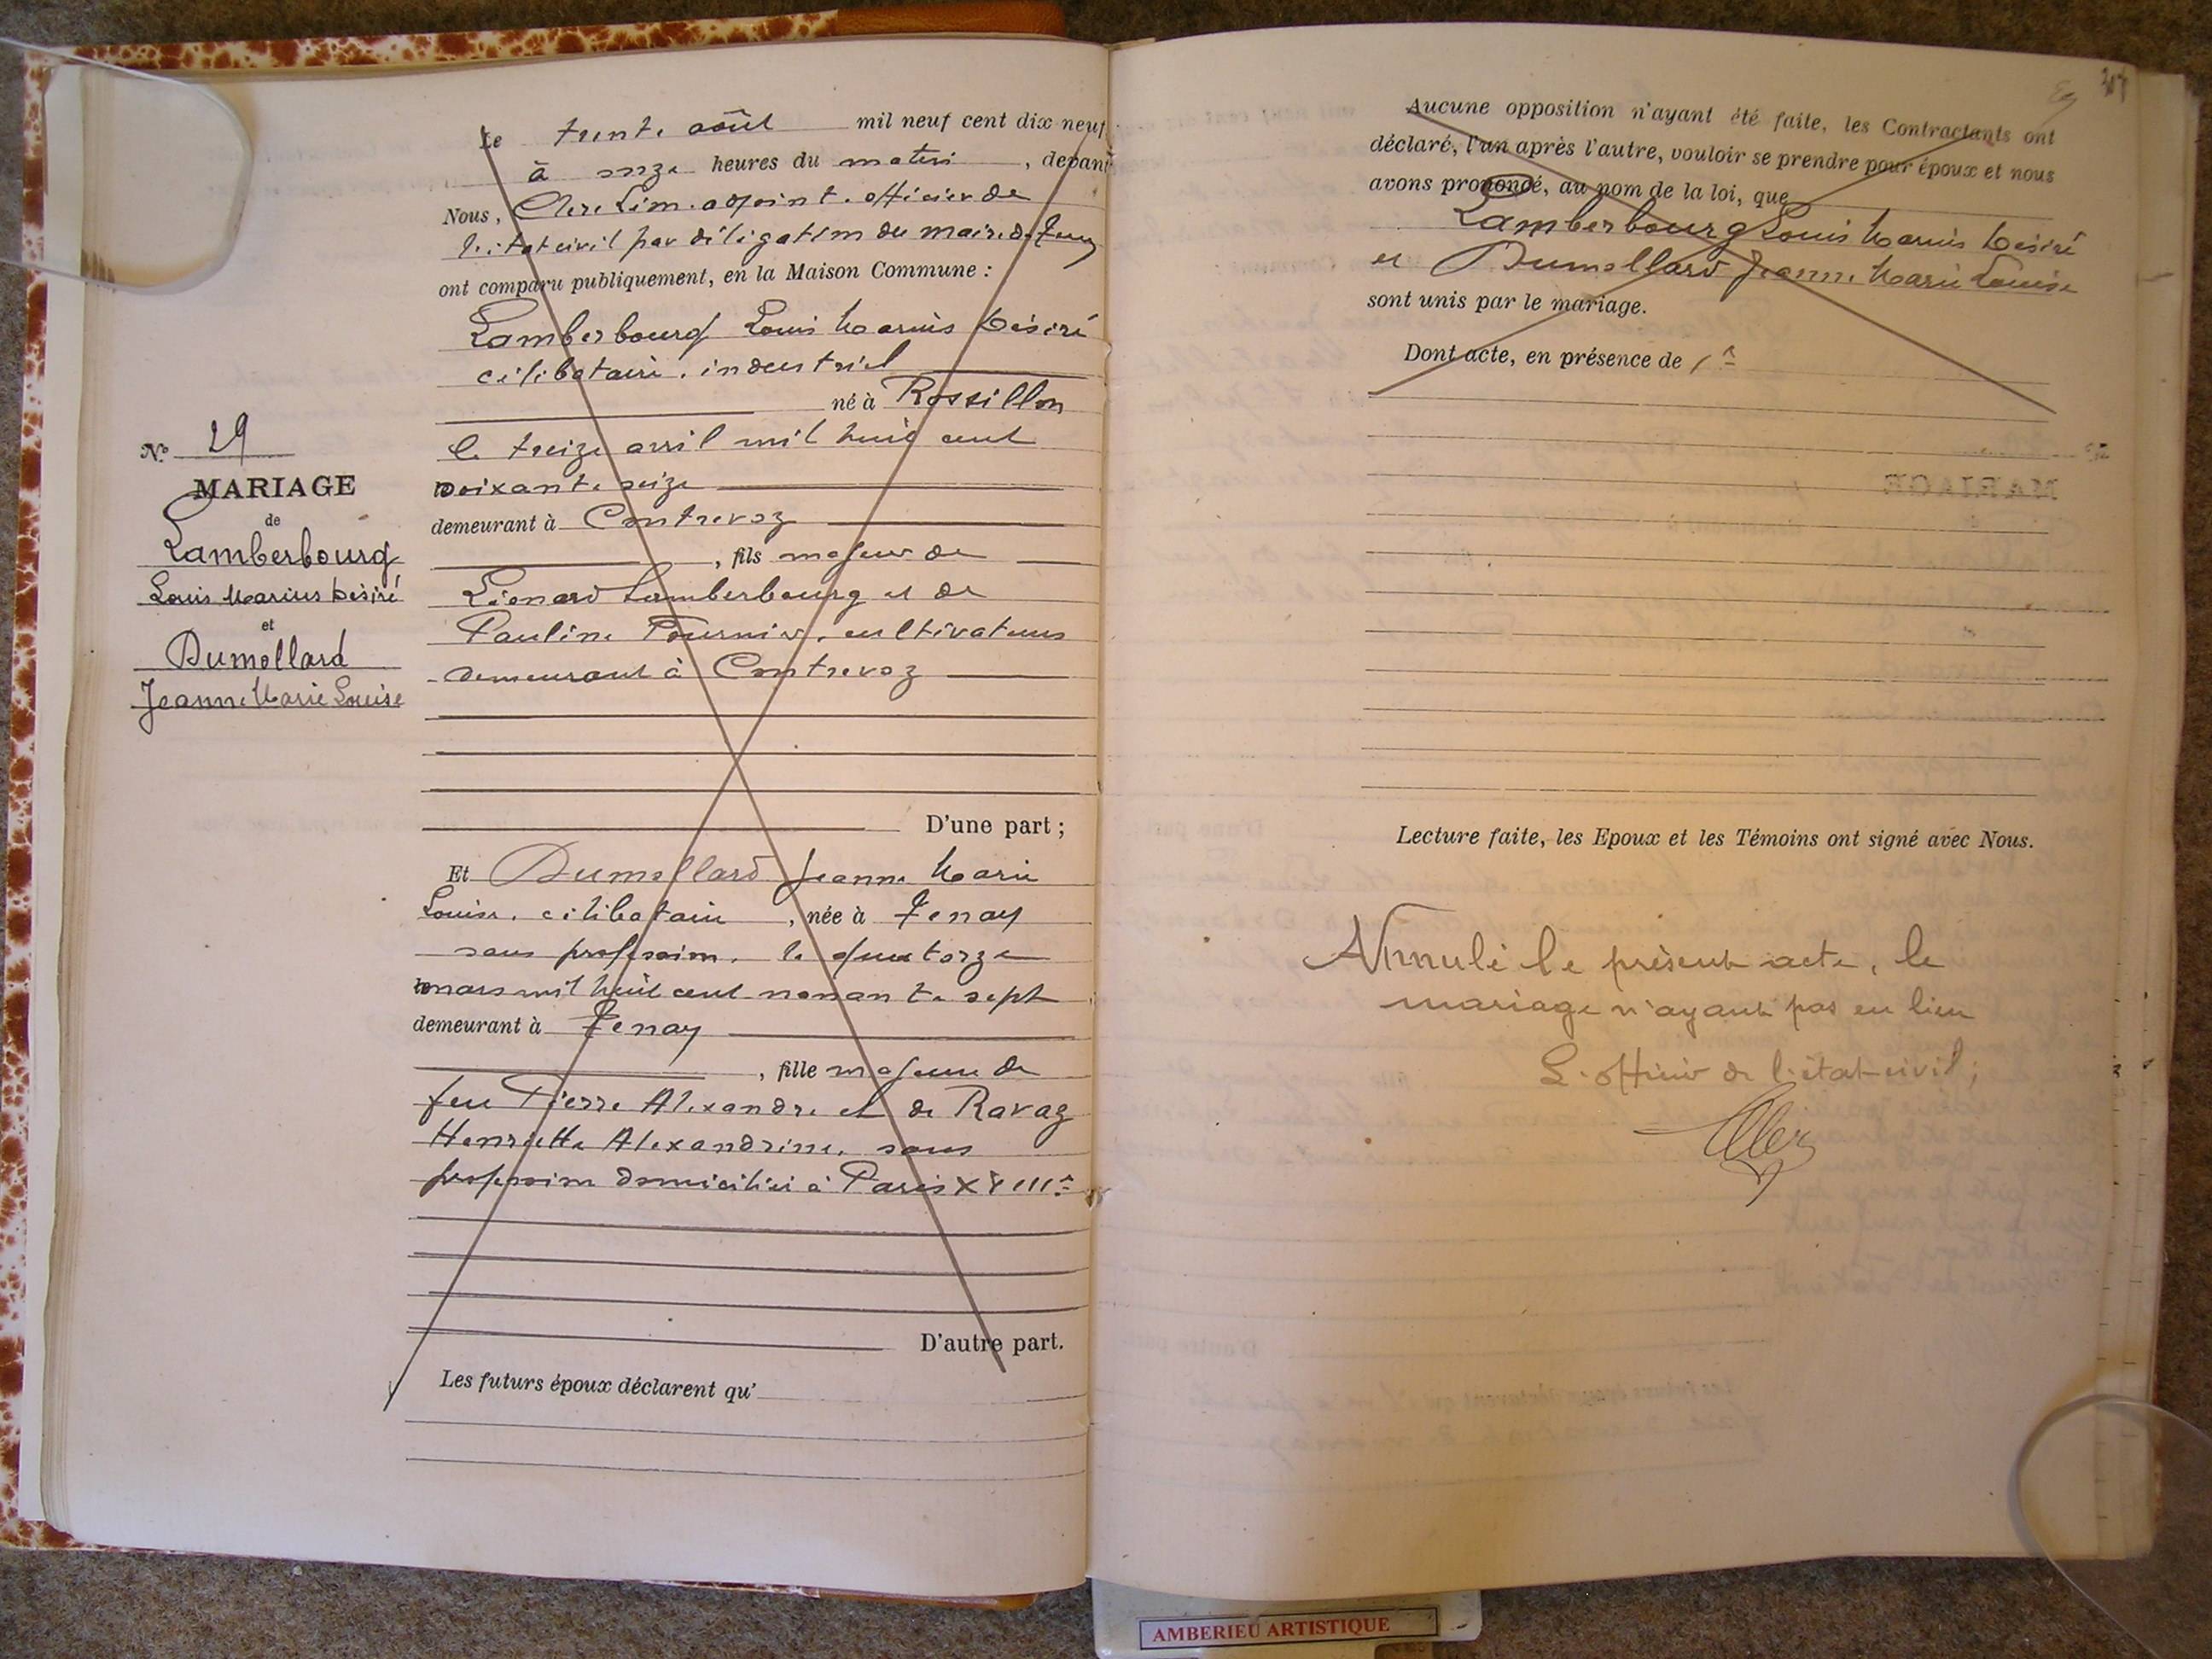 Le trente août mil neuf cent dix neuf
à onze heures du matin, devant
Nous, Clerc Léon adjoint officier de
l'état civil par délégation du maire de Tenay
ont comparu publiquement, en la Maison Commune :
Lamberbourg Louis Marius Désiré
célibataire, industriel
né à Rossillon
le treize avril mil huit cent
soixante seize
demeurant à Contrevoz
, fils majeur de
Léonard Lamberbourg et de
Pauline Fournier, cultivateurs
demeurant à Contrevoz
D'une part ;
N° 29
MARIAGE
de
Lamberbourg
Louis Marius Désiré
et
Dumollard
Jeanne Marie Louise
Et Dumollard Jeanne Marie
Louise, célibataire, née à Tenay
sans profession, le quatorze
mars mil huit cent nonante sept
demeurant à Tenay
, fille majeure de
feu Pierre Alexandre et de Ravaz
Henriette Alexandrine, sans
profession domiciliée à Paris XVIIIe
D'autre part.
Les futurs époux déclarent qu'
Aucune opposition n'ayant été faite, les Contractants ont
déclaré, l'un après l'autre, vouloir se prendre pour époux et nous
avons prononcé, au nom de la loi, que
Lamberbourg Louis Marius Désiré
et Dumollard Jeanne Marie Louise
sont unis par le mariage.
Dont acte, en présence de
Lecture faite, les Epoux et les Témoins ont signé avec Nous.
Annulé le présent acte, le
mariage n'ayant pas eu lieu
L'officier de l'état civil ;
AMBERIEU ARTISTIQUE